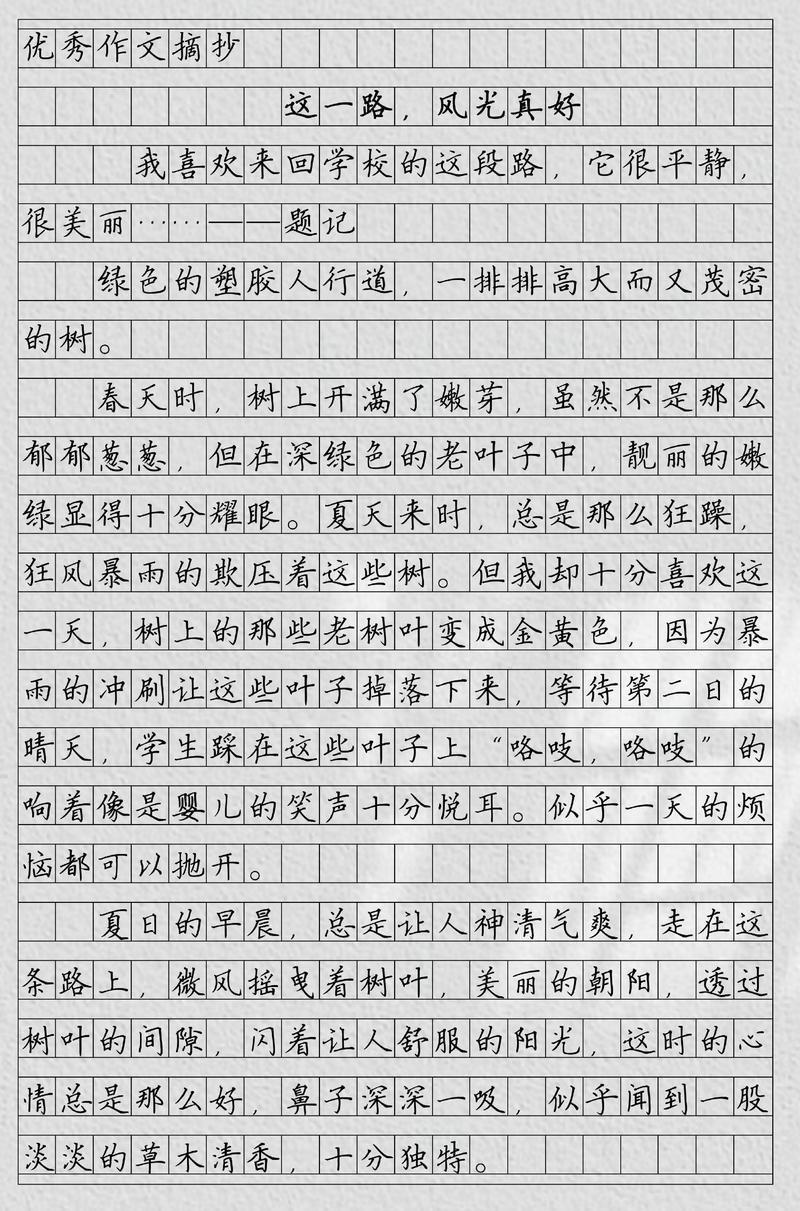 优秀作文摘抄
这一路，风光真好
我喜欢来回学校的这段路，它很平静，
很美丽……——题记
绿色的塑胶人行道，一排排高大而又茂密
的树。
春天时，树上开满了嫩芽，虽然不是那么
郁郁葱葱，但在深绿色的老叶子中，靓丽的嫩
绿显得十分耀眼。夏天来时，总是那么狂躁，
狂风暴雨的欺压着这些树。但我却十分喜欢这
一天，树上的那些老树叶变成金黄色，因为暴
雨的冲刷让这些叶子掉落下来，等待第二日的
晴天，学生踩在这些叶子上“咯吱，咯吱”的
响着像是婴儿的笑声十分悦耳。似乎一天的烦
恼都可以抛开。
夏日的早晨，总是让人神清气爽，走在这
条路上，微风摇曳着树叶，美丽的朝阳，透过
树叶的间隙，闪着让人舒服的阳光，这时的心
情总是那么好，鼻子深深一吸，似乎闻到一股
淡淡的草木清香，十分独特。